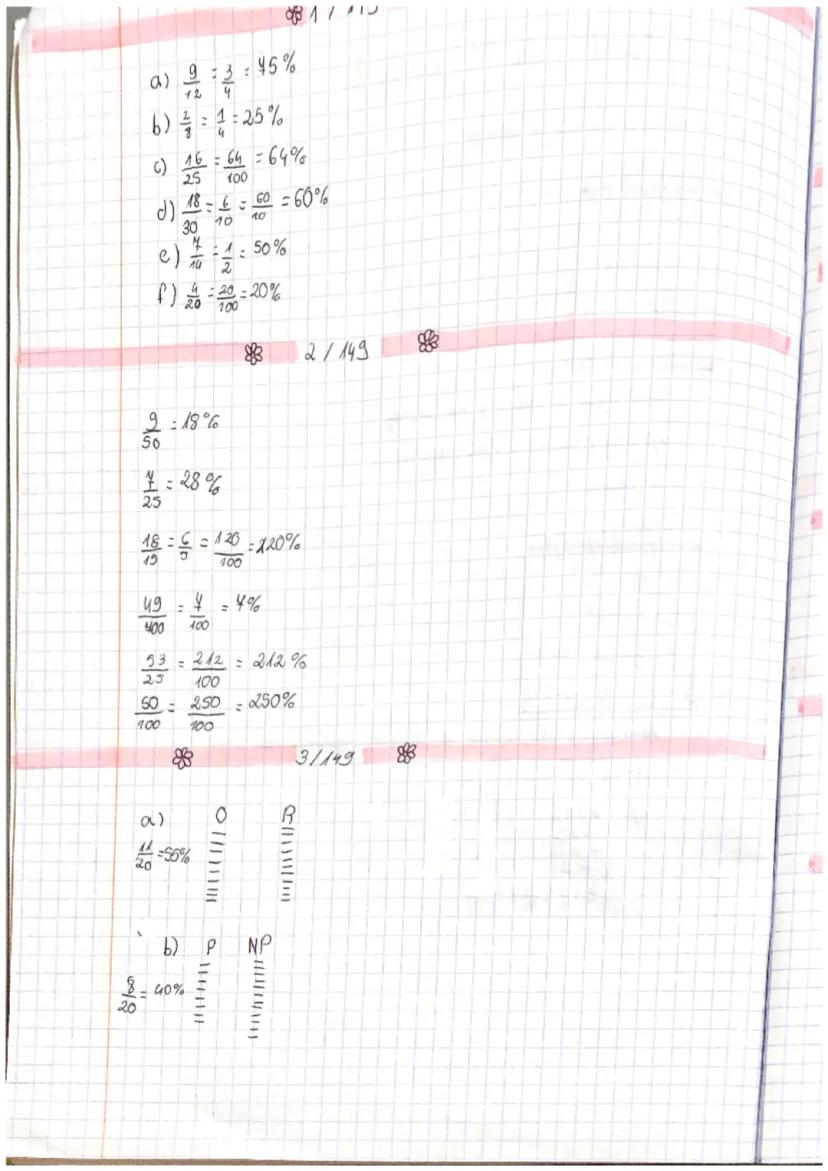 a) 9/12 = 3/4 = 75%
b) 2/8 = 1/4 = 25%
c) 16/25 = 64/100 = 64%
d) 18/30 = 6/10 = 60/10 = 60%
e) 7/14 = 1/2 = 50%
f) 4/20 = 20/100 = 20%
2/149
9/50 = 18%
7/25 = 28%
18/15 = 6/5 = 120/100 = 120%
49/700 = 7/100 = 7%
53/25 = 212/100 = 212%
50/100 = 250/100 = 250%
3/149
a) O R
11/20 = 55%
b) P NP
8/20 = 40%